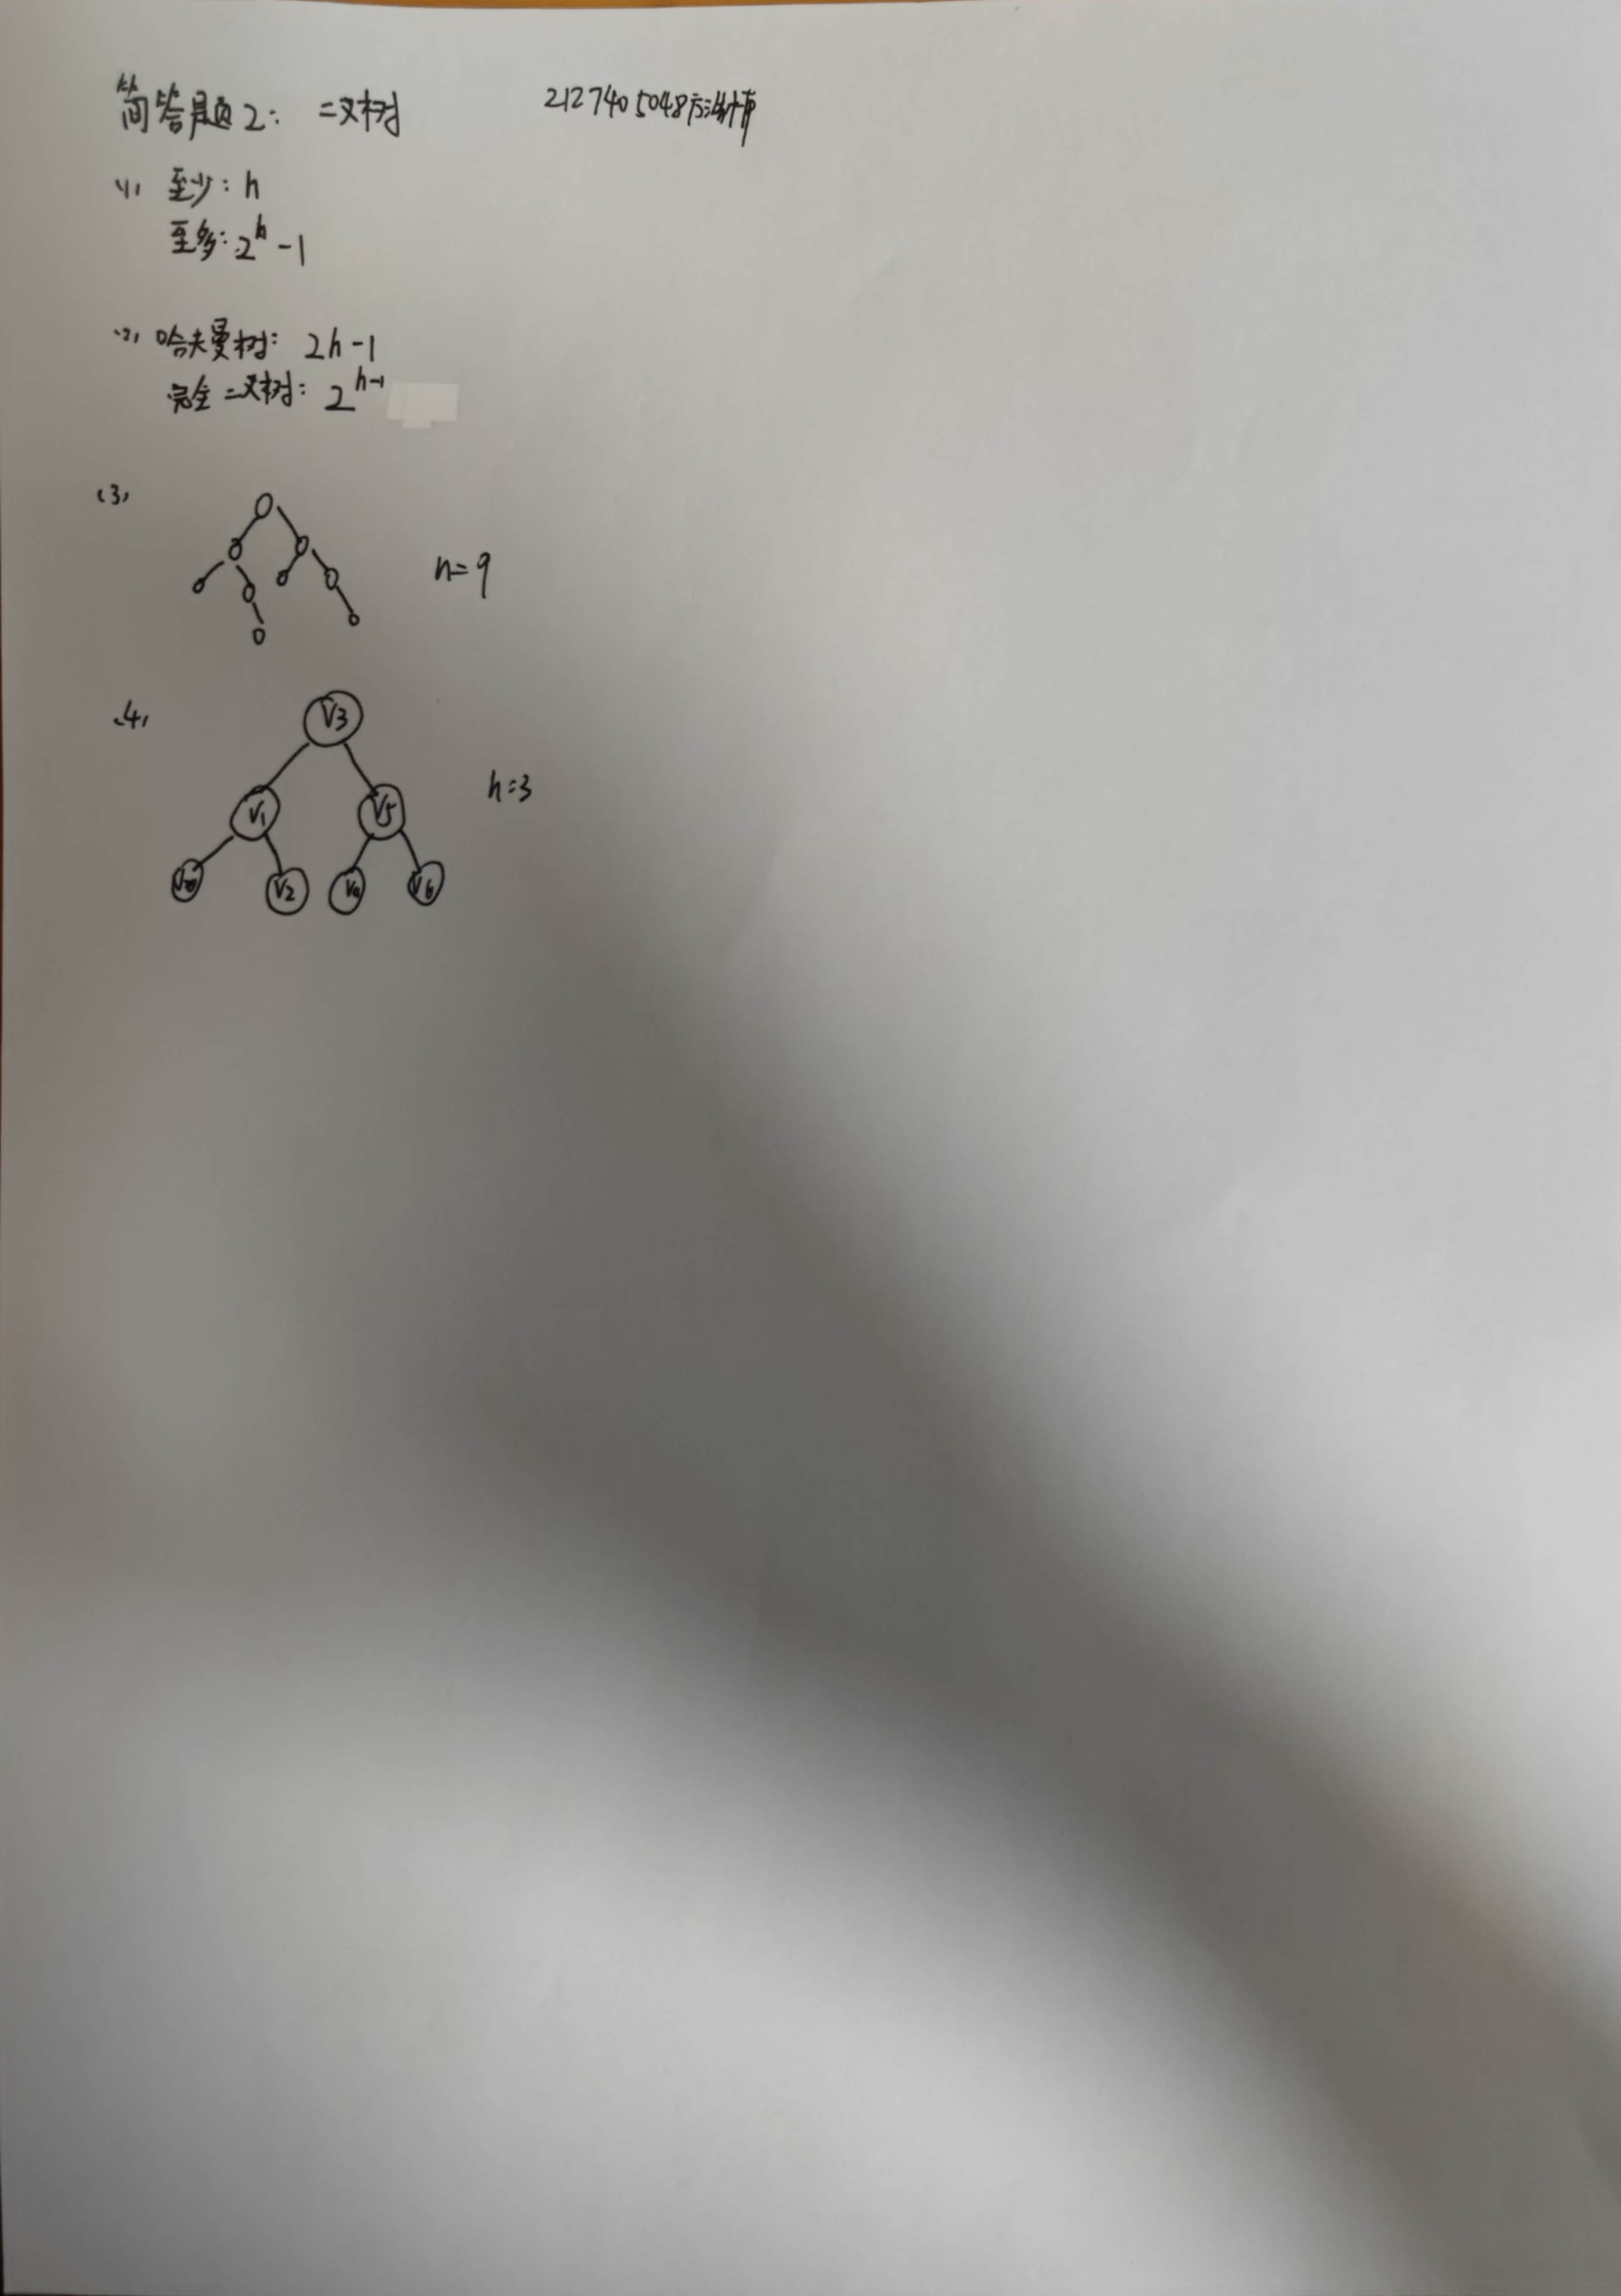 简答题2： 二叉树 2127405048
(1) 至少：h
至多：2^h -1
(2) 哈夫曼树：2h-1
完全二叉树：2^{h-1}
(3)
n=9
(4)
V3
h=3
V1 V5
V2 V6